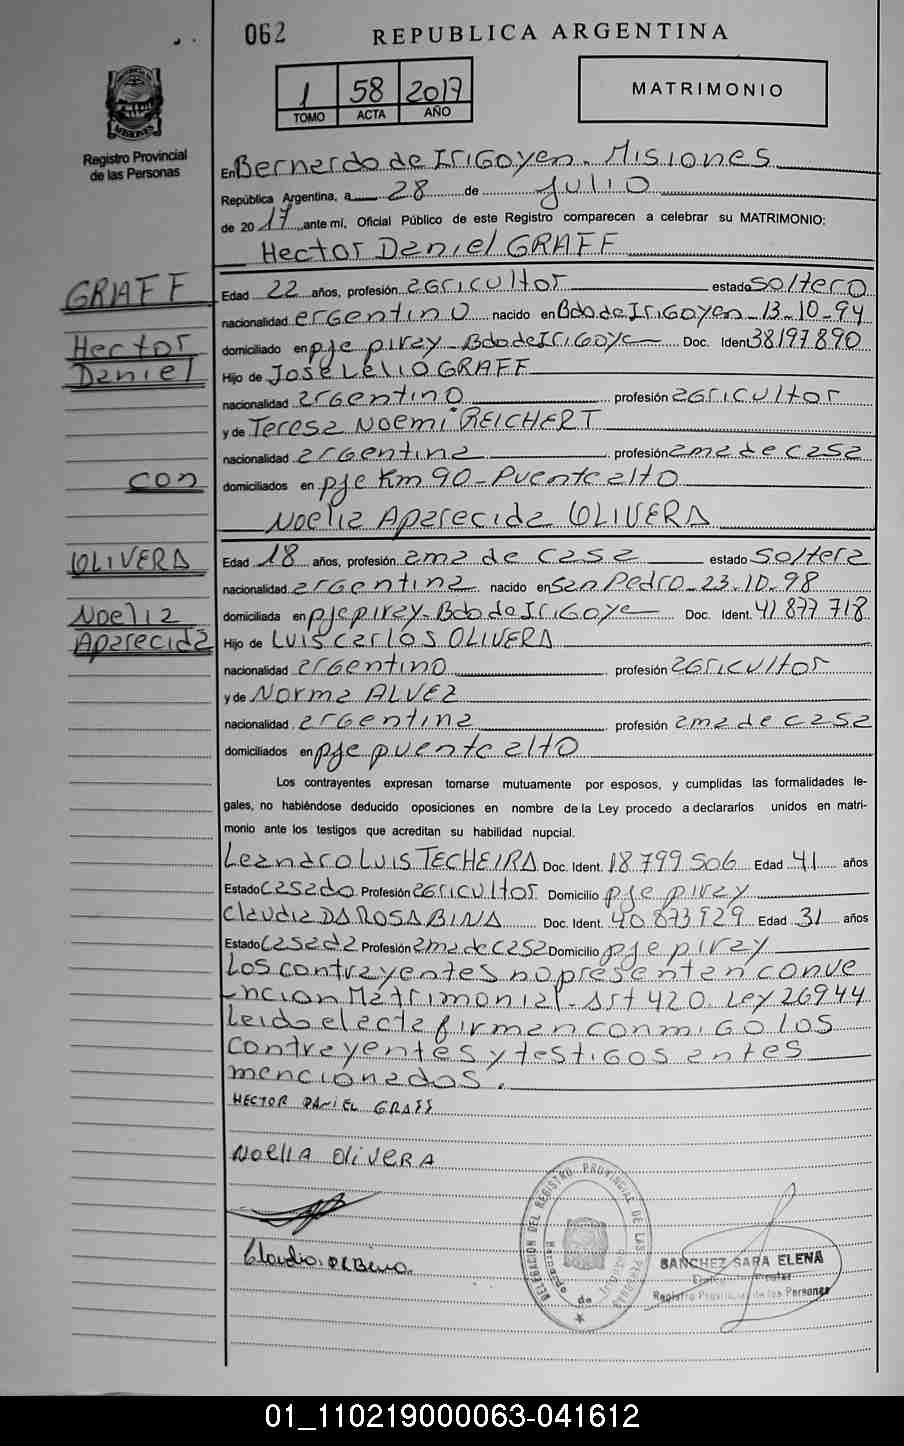 062
REPUBLICA ARGENTINA
1 58 2017
TOMO ACTA AÑO
MATRIMONIO
MISIONES
Registro Provincial
de las Personas
En Bernardo de IriGoyen. Misiones
República Argentina, a 28 de Julio
de 2017 ante mí, Oficial Público de este Registro comparecen a celebrar su MATRIMONIO:
Hector Daniel GRAFF
GRAFF
Hector
Daniel
con
OLIVERA
Noelia
Aparecida
Edad 22 años, profesión aGricultor estado soltero
nacionalidad arGentino nacido en Bdo de IriGoyen - 13-10-94
domiciliado en pje piray - Bdo de IriGoye Doc. Ident 38197890
Hijo de Jose Lelio GRAFF
nacionalidad arGentino profesión aGricultor
y de Teresa Noemi REICHERT
nacionalidad arGentina profesión ama de casa
domiciliados en pje Km 90 - Puente alto
Noelia Aparecida OLIVERA
Edad 18 años, profesión ama de casa estado soltera
nacionalidad arGentina nacido en San Pedro - 23-10-98
domiciliada en pje piray - Bdo de IriGoye Doc. Ident. 41877718
Hijo de Luis Carlos OLIVERA
nacionalidad arGentino profesión aGricultor
y de Norma ALVEZ
nacionalidad arGentina profesión ama de casa
domiciliados en pje puente alto
Los contrayentes expresan tomarse mutuamente por esposos, y cumplidas las formalidades le-
gales, no habiéndose deducido oposiciones en nombre de la Ley procedo a declararlos unidos en matri-
monio ante los testigos que acreditan su habilidad nupcial.
Leandro Luis TECHEIRA Doc. Ident. 18.799.506 Edad 41 años
Estado Casado Profesión aGricultor Domicilio pje piray
Claudia DA ROSA BINA Doc. Ident. 40.873929 Edad 31 años
Estado Casada Profesión ama de casa Domicilio pje piray
Los contrayentes no presentan conve
ncion Matrimonial - Art 420. Ley 26944
Leido el acta firman conmiGo los
contrayentes y testiGos antes
mencionados.
HECTOR DANIEL GRAFF
Noelia OliVERA
Claudia
DELEGACION DEL REGISTRO PROVINCIAL DE LAS PERSONAS
SANCHEZ SARA ELENA
Registro Provincial de las Personas
01_110219000063-041612